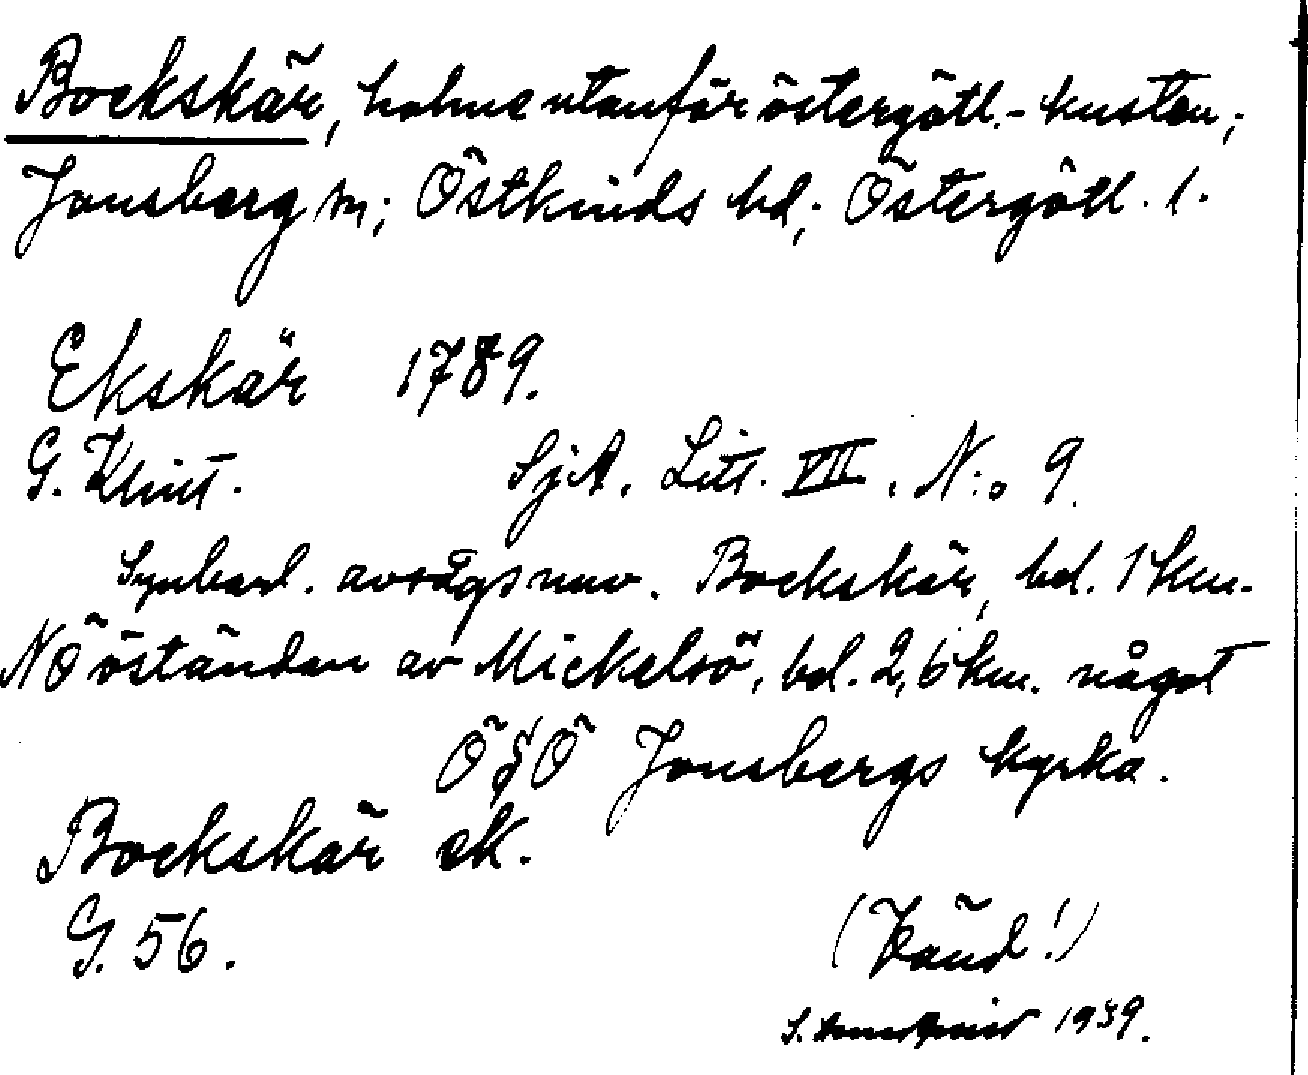 Bockskär, holme utanför östergötl.-kusten;
Jonsberg sn; Östkinds hd; Östergötl. l.
Ekskär 1789.
G. Klint. SjA. Litt. VII. N:o 9.
Synbarl. avsågs nuv. Bockskär, bel. 1 km.
NÖ öständen av Mickelsö, bel. 2,6 km. något
ÖSÖ Jonsbergs kyrka.
Bockskär ek.
G. 56.
(Vänd!)
1939.